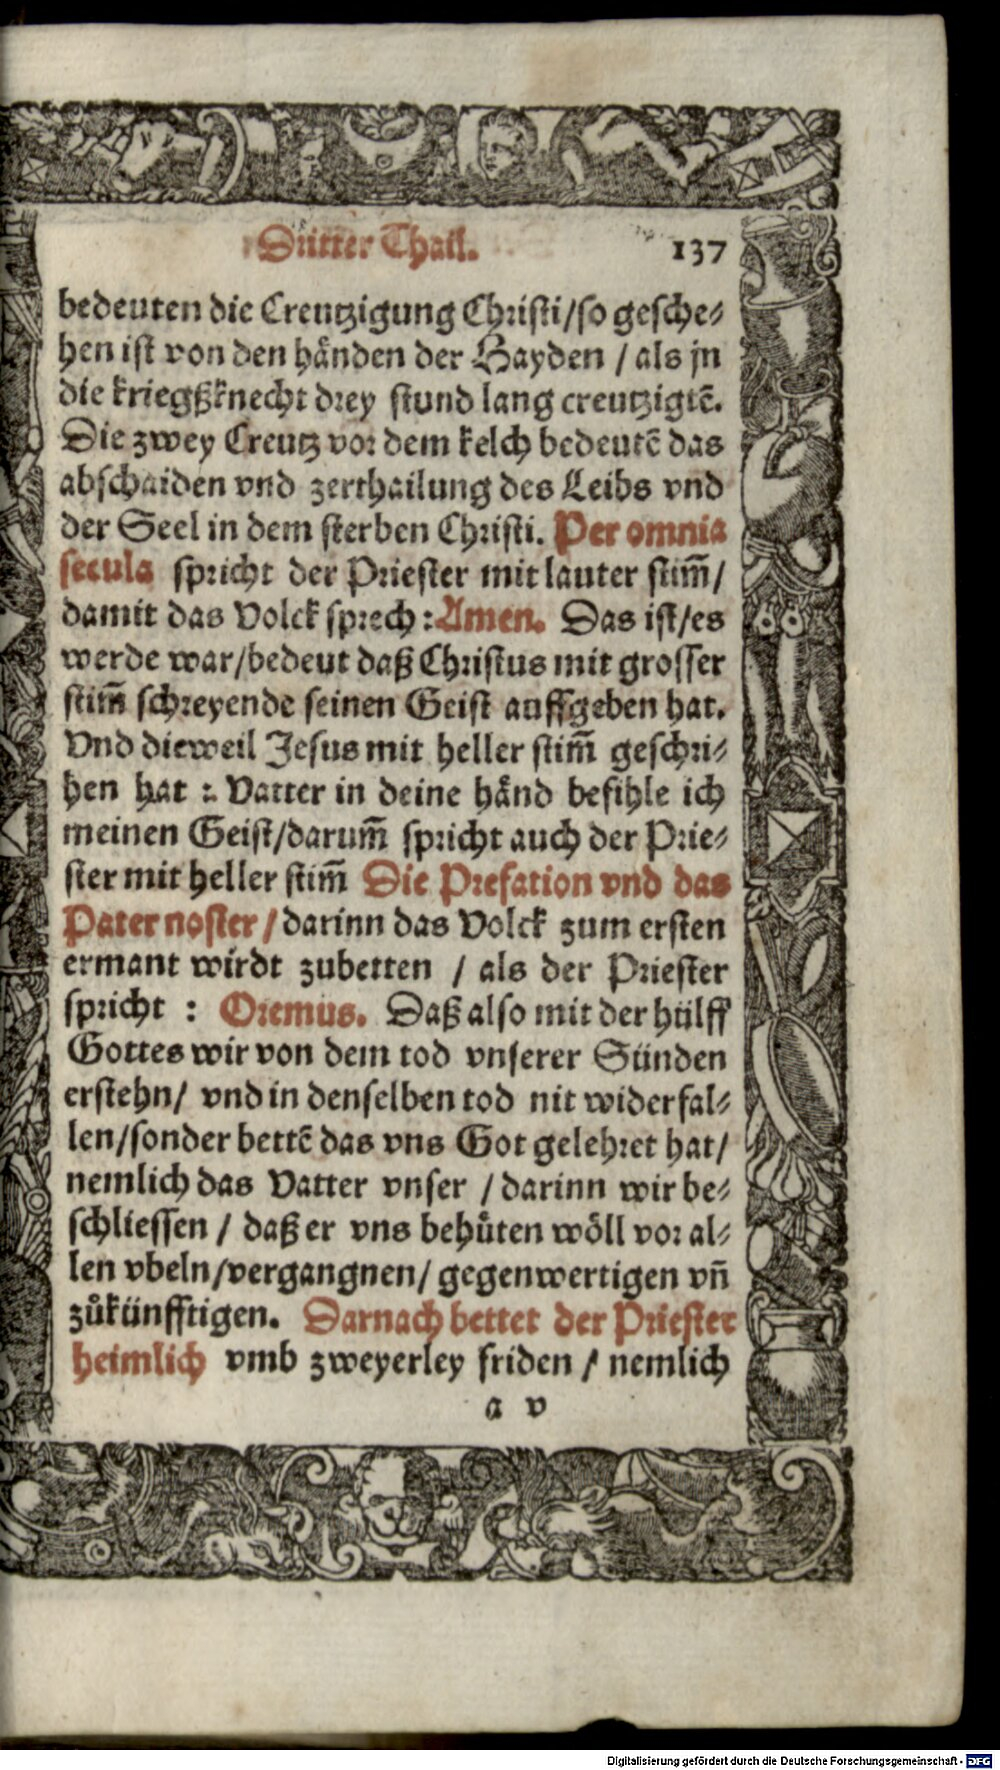 Dritter Thail. 137
bedeuten die Creutzigung Christi/so gesche⸗
hen ist von den hånden der Hayden / als jn
die kriegßknecht drey stund lang creutzigtē.
Die zwey Creutz vor dem kelch bedeutē das
abschaiden vnd zerthailung des Leibs vnd
der Seel in dem sterben Christi. Per omnia
secula spricht der Priester mit lauter stim̄/
damit das Volck sprech : Amen. Das ist/es
werde war/bedeut daß Christus mit grosser
stim̄ schreyende seinen Geist auffgeben hat.
Vnd dieweil Jesus mit heller stim̄ geschri⸗
hen hat : Vatter in deine hånd befihle ich
meinen Geist/darum̄ spricht auch der Prie⸗
ster mit heller stim̄ Die Prefation vnd das
Pater noster / darinn das Volck zum ersten
ermant wirdt zubetten / als der Priester
spricht : Oremus. Daß also mit der hülff
Gottes wir von dem tod vnserer Sünden
erstehn/ vnd in denselben tod nit widerfal⸗
len/sonder bettē das vns Got gelehret hat/
nemlich das Vatter vnser / darinn wir be⸗
schliessen / daß er vns behůten wöll vor al⸗
len vbeln/vergangnen/ gegenwertigen vn̄
zůkünfftigen. Darnach bettet der Priester
heimlich vmb zweyerley friden / nemlich
a v
Digitalisierung gefördert durch die Deutsche Forschungsgemeinschaft - DFG